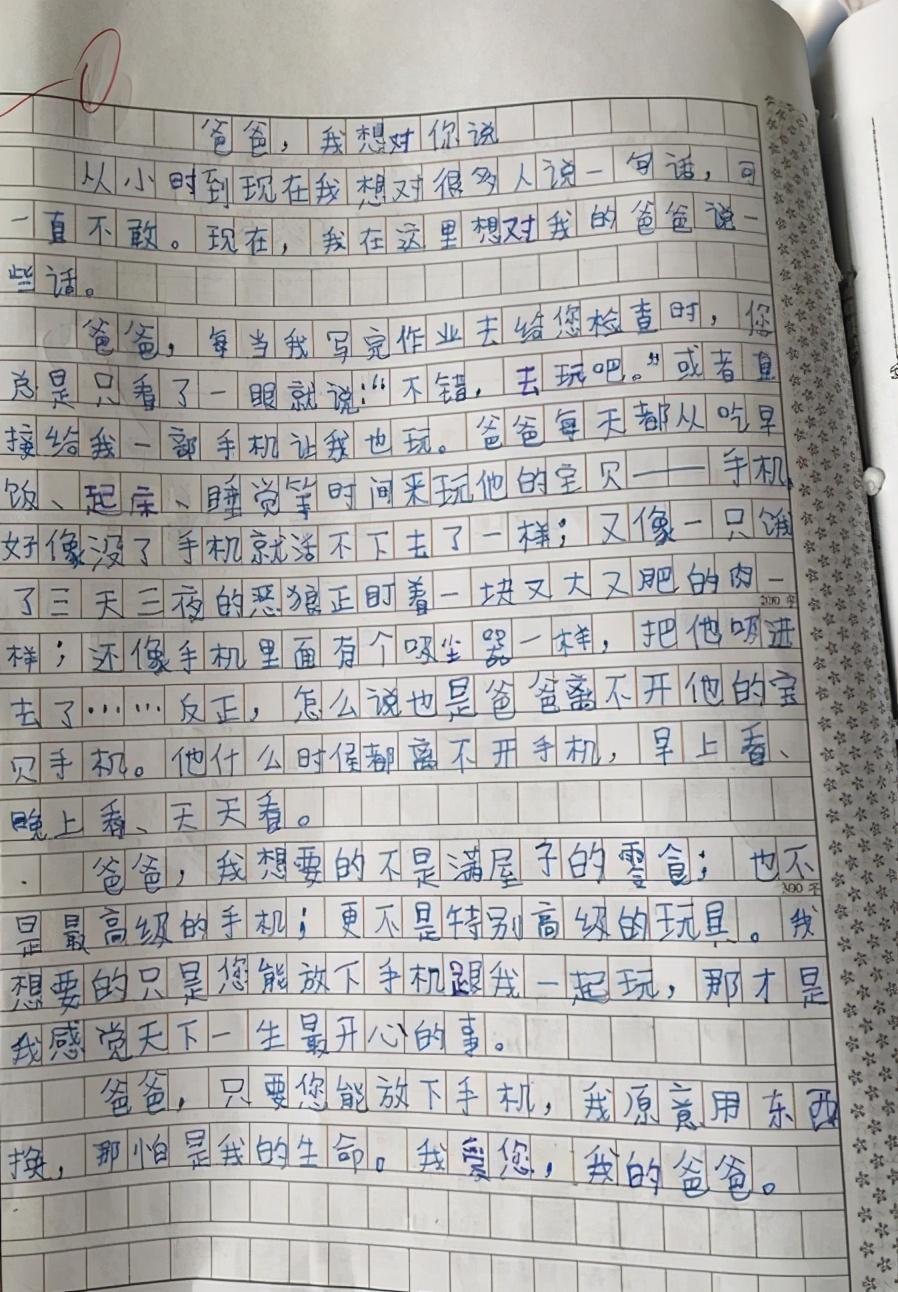 爸爸，我想对你说
从小时到现在我想对很多人说一句话，可
一直不敢。现在，我在这里想对我的爸爸说一
些话。
爸爸，每当我写完作业去给您检查时，您
总是只看了一眼就说：“不错，去玩吧。”或者直
接给我一部手机让我也玩。爸爸每天都从吃早
饭、起床、睡觉等时间来玩他的宝贝——手机，
好像没了手机就活不下去了一样；又像一只饿
了三天三夜的恶狼正盯着一块又大又肥的肉一
200字
样；还像手机里面有个吸尘器一样，把他吸进
去了……反正，怎么说也是爸爸离不开他的宝
贝手机。他什么时候都离不开手机，早上看、
晚上看、天天看。
爸爸，我想要的不是满屋子的零食；也不
300字
是最高级的手机；更不是特别高级的玩具。我
想要的只是您能放下手机跟我一起玩，那才是
我感觉天下一生最开心的事。
爸爸，只要您能放下手机，我原意用东西
换，那怕是我的生命。我爱您，我的爸爸。